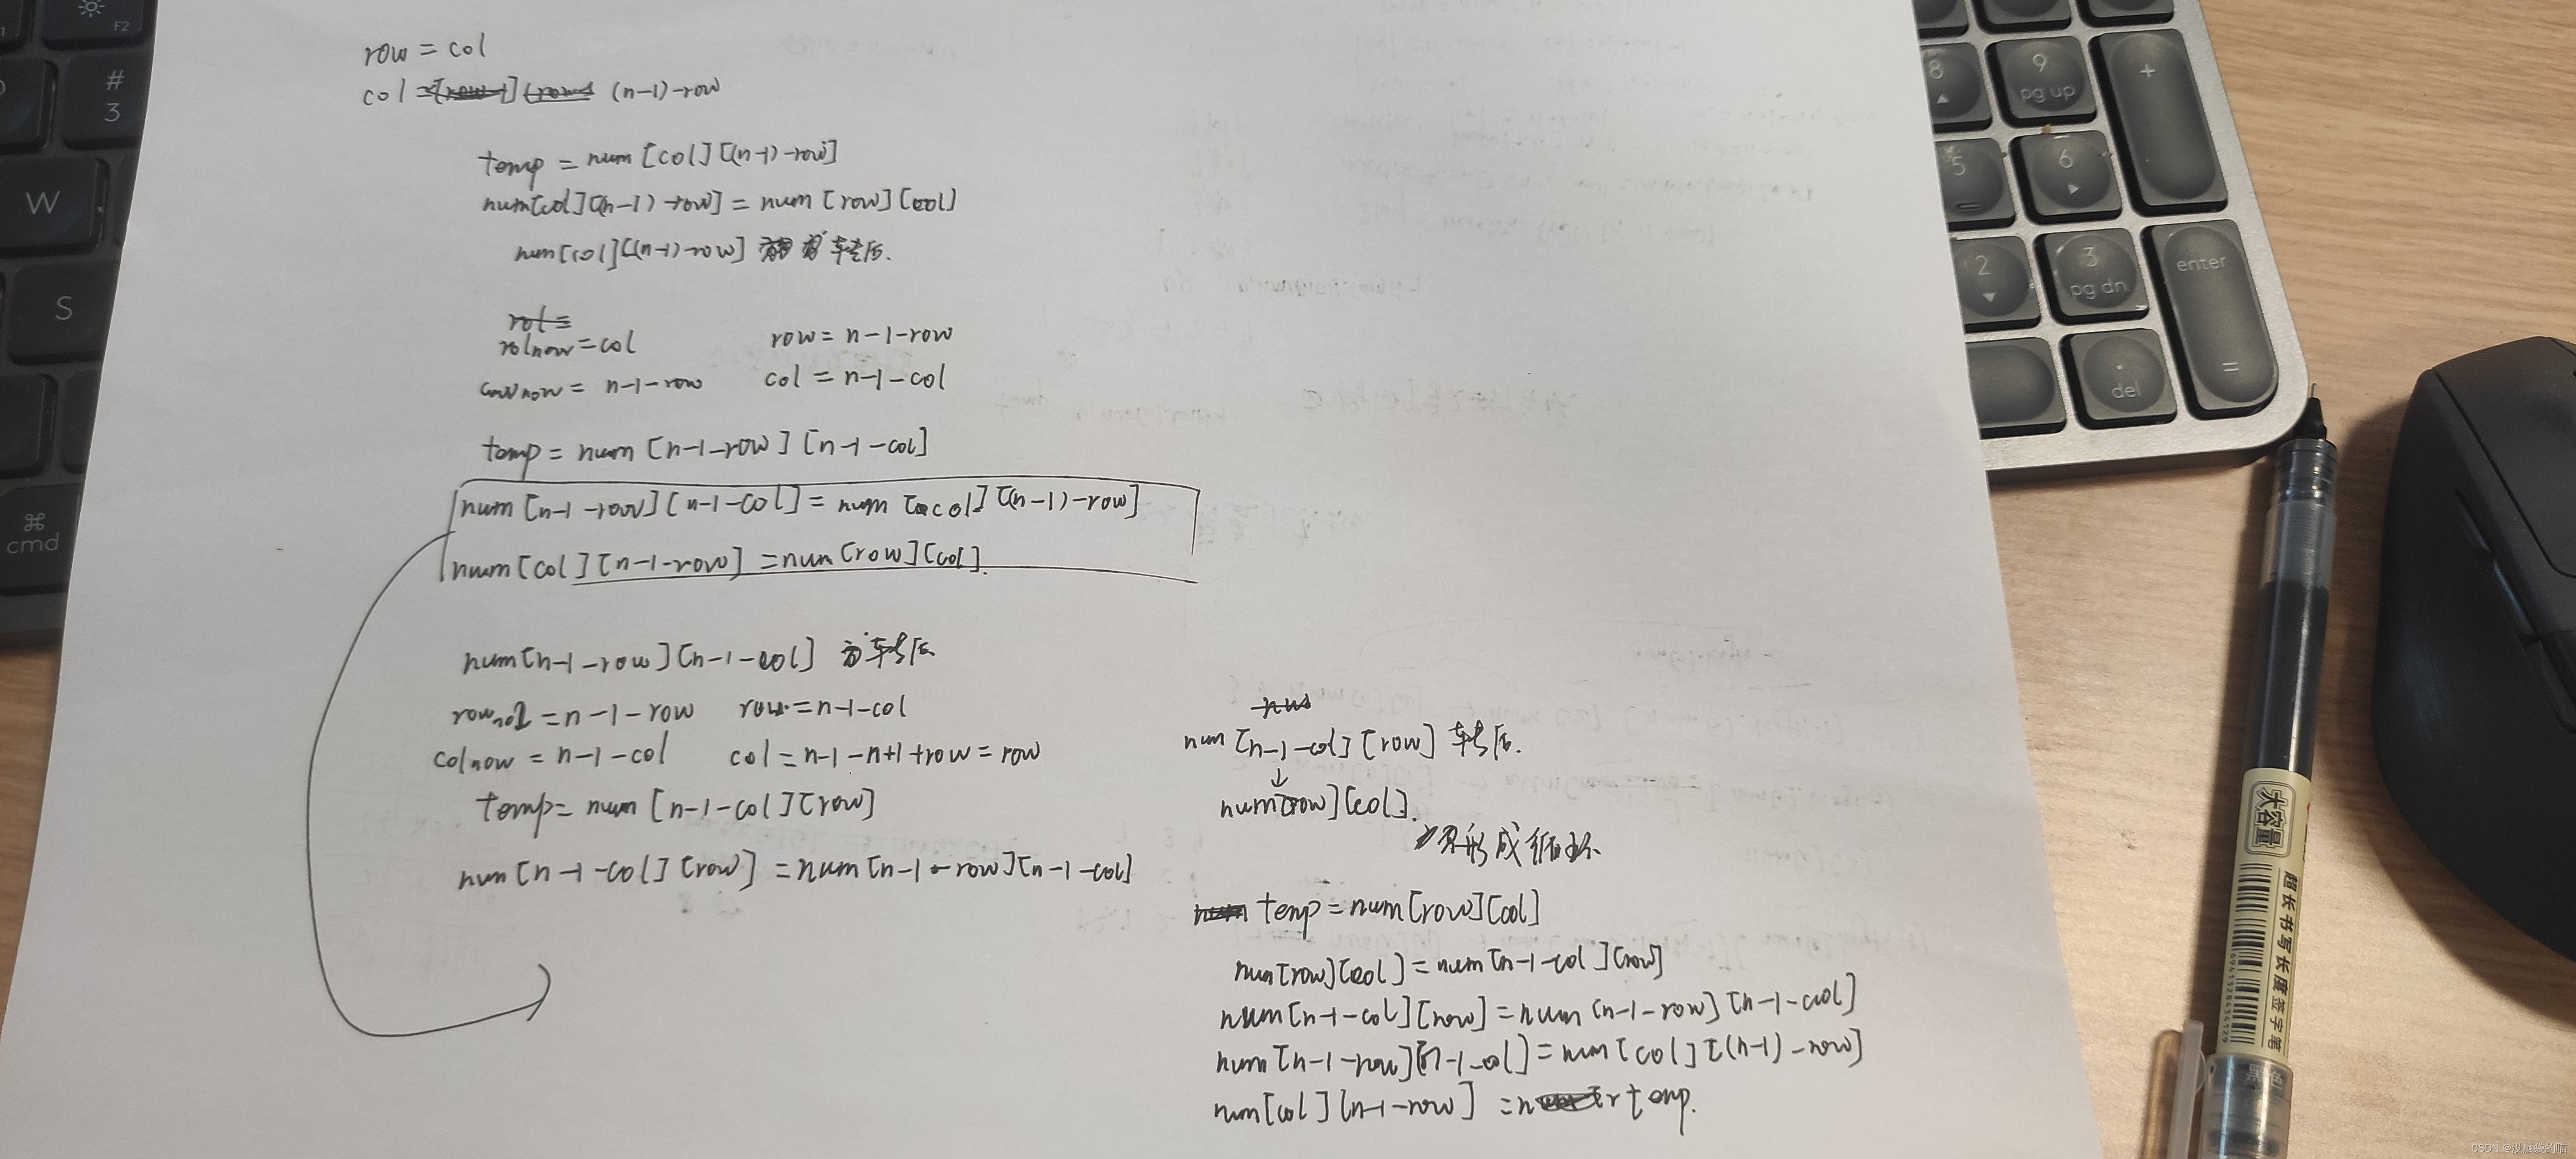 row = col
col = (n-1)-row
temp = num[col][(n-1)-row]
num[col][(n-1)-row] = num[row][col]
num[col][(n-1)-row] 转后.
rolnow = col row = n-1-row
n-1-row col = n-1-col
temp = num[n-1-row][n-1-col]
num[n-1-row][n-1-col] = num[col][(n-1)-row]
num[col][n-1-row] = num[row][col].
num[n-1-row][n-1-col] 转后
= n-1-row row = n-1-col
colnow = n-1-col col = n-1-n+1+row = row
temp = num[n-1-col][row]
num[n-1-col][row] = num[n-1-row][n-1-col]
num[n-1-col][row] 转后.
↓
num[row][col].
形成循环
temp = num[row][col]
num[row][col] = num[n-1-col][row]
num[n-1-col][row] = num[n-1-row][n-1-col]
num[n-1-row][n-1-col] = num[col][(n-1)-row]
num[col][n-1-row] = temp.
F2
#
3
W
S
⌘
cmd
8
9
pg up
+
5
6
2
3
pg dn
enter
.
del
=
大容量
超长书写长度签字笔
黑色
CSDN @没脑袋的喵